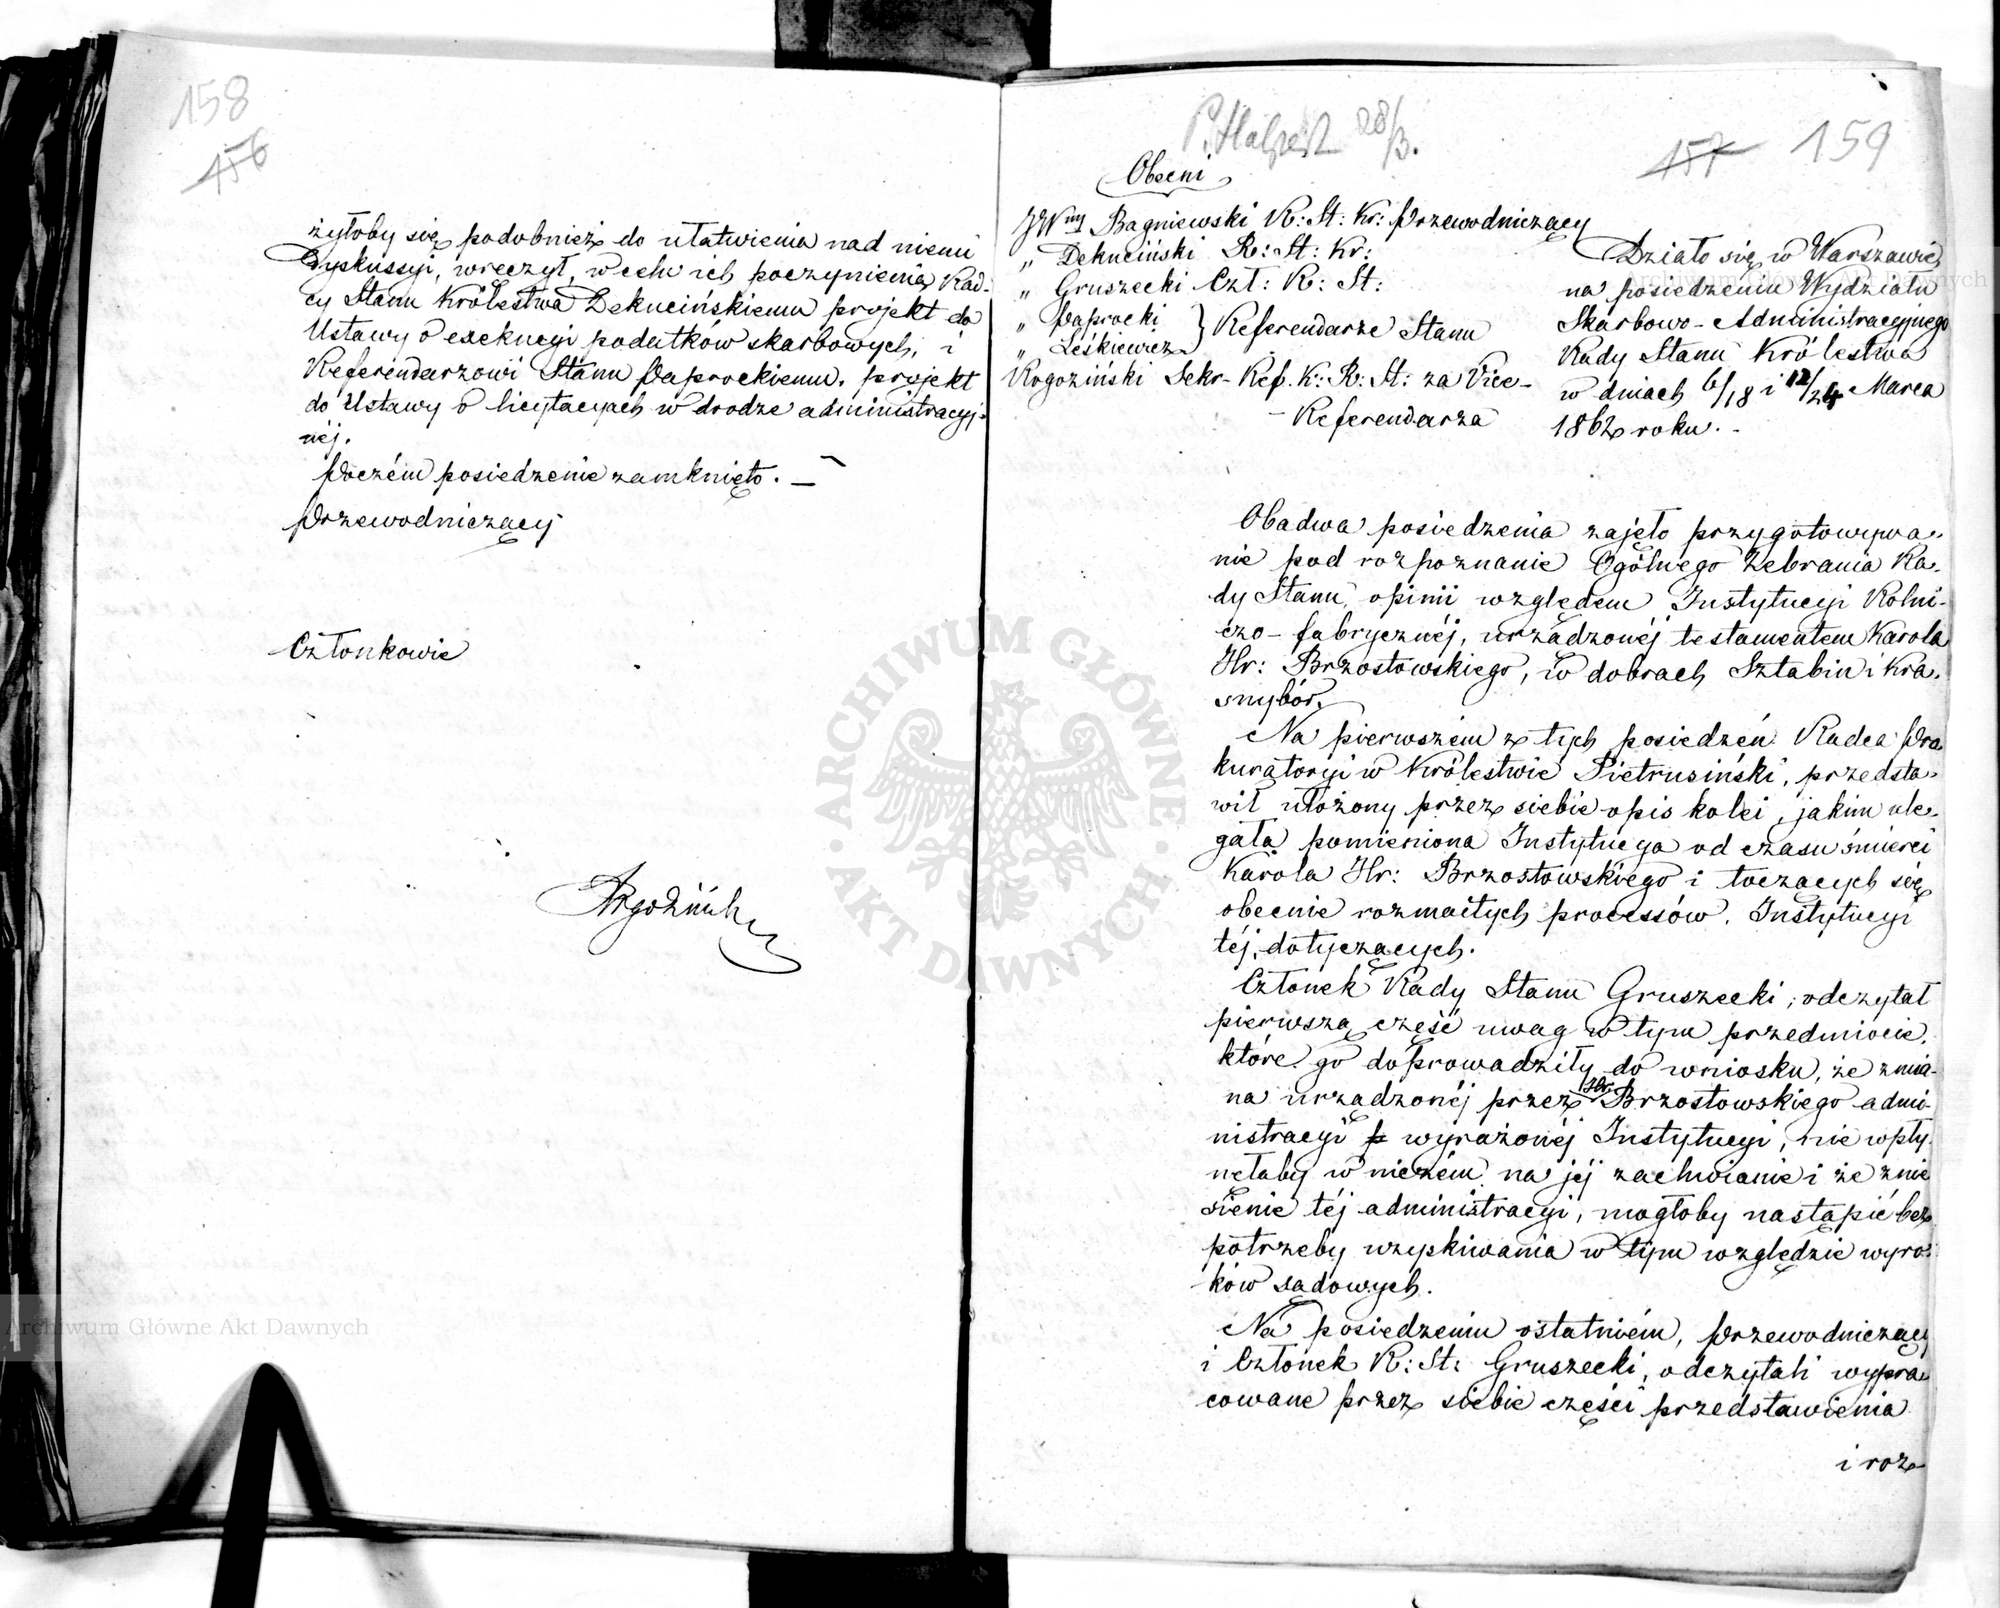 158
156
żyłoby się podobnież do ułatwienia nad niemi
dyskussyi, wręczył, w celu ich poczynienia Rad-
cy Stanu Królestwa Dekucińskiemu projekt do
Ustawy o exekucyi podatków skarbowych, i
Referendarzowi Stanu Paprockiemu, projekt
do Ustawy o licytacyach w drodze administracyj-
néj.
Poczém posiedzenie zamknięto. —
Przewodniczący
Członkowie
Rogoziński
28/3.
157 159
Obecni
JWny Bagniewski R: St: Kr: Przewodniczący
„ Dekuciński R: St: Kr:
„ Gruszecki Czł: R: St:
„ Paprocki
„ Leśkiewicz } Referendarze Stanu
Rogoziński Sekr- Ref. K: R: St: za Vice-
- Referendarza
Działo się w Warszawie
na posiedzeniu Wydziału
Skarbowo-Administracyjnego
Rady Stanu Królestwa
w dniach 6/18 i 12/24 Marca
1862 roku. -
Obadwa posiedzenia zajęło przygotowywa-
nie pod rozpoznanie Ogólnego Zebrania Ra-
dy Stanu, opinii względem Instytucyi Rolni-
czo-fabrycznéj, urządzonéj testamentem Karola
Hr: Brzostowskiego, w dobrach Sztabin i Kra-
snybór.
Na pierwszém z tych posiedzeń Radca Pro
kuratoryi w Królestwie Pietrusiński, przedsta-
wił ułożony przez siebie opis kolei, jakim ule-
gała pomieniona Instytucya od czasu śmierci
Karola Hr: Brzostowskiego i toczących się
obecnie rozmaitych processów, Instytucyi
téj dotyczących.
Członek Rady Stanu Gruszecki, odczytał
pierwszą część uwag w tym przedmiocie,
które go doprowadziły do wniosku, że zmia-
na urządzonéj przez Hr: Brzostowskiego admi-
nistracyi p wyrażonéj Instytucyi, nie wpły-
nęłaby w niczém na jéj zachwianie i że znie
sienie téj administracyi, mogłoby nastąpić bez
potrzeby uzyskiwania w tym względzie wyro-
ków sądowych.
Na posiedzeniu ostatniém, Przewodniczący
i Członek R: St: Gruszecki, odczytali wypra-
cowane przez siebie części przedstawienia
i roz-
ARCHIWUM GŁÓWNE AKT DAWNYCH
Archiwum Główne Akt Dawnych
Archiwum Główne Akt Dawnych